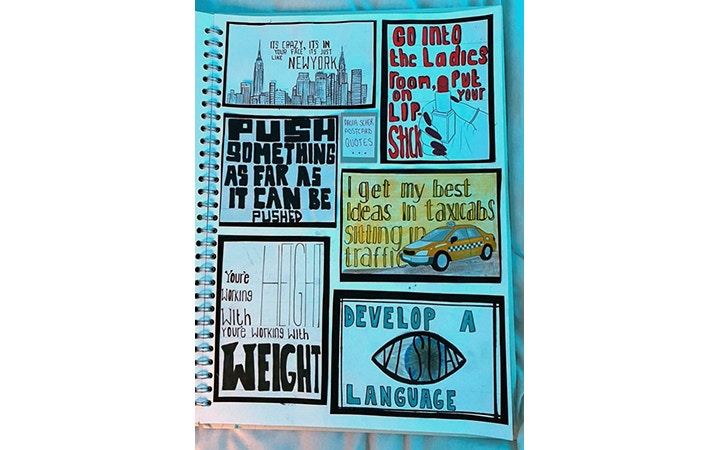 ITS CRAZY, ITS IN
YOUR FACE ITS JUST
LIKE NEWYORK
GO INTO
the LadieS
room, Put
on YOUR
LIP
STICK
PUSH
SOMETHING
AS FAR AS
IT CAN BE
PUSHED
PAULA SCHER
POSTCARD
QUOTES
...
I get my best
Ideas in taxicabs
sitting in
traffic
You're HEIGHT
working
with
You're working with
WEIGHT
DEVELOP A
VISUAL
LANGUAGE